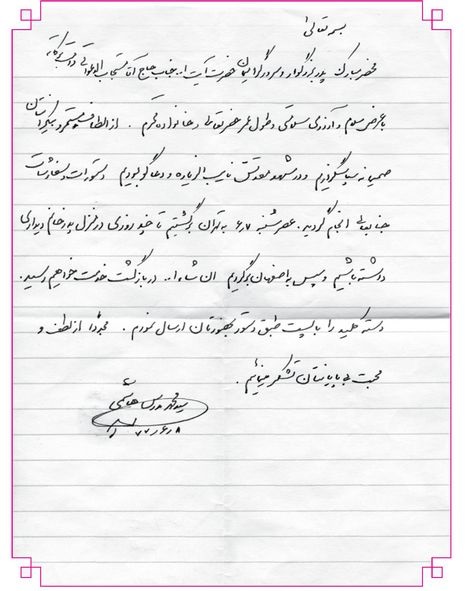 بسمه تعالی
محضر مبارک پدر بزرگوار و سرور گرامیمان حضرت آیت ا... جناب حاج آقا مستجاب الدعواتی دامت برکاته
با عرض سلام و آرزوی سلامتی و طول عمر حضرتعالی و خانواده محترم . از الطاف مستمر و بیکرانتان
صمیمانه سپاسگزاریم و در مشهد مقدس نایب الزیاره و دعاگو بودیم دستورات و سفارشات
جنابعالی انجام گردید. عصر شنبه ۶/۷ به تهران برگشتیم تا چند روزی در منزل پدر خانم دیداری
داشته باشیم و سپس به اصفهان برگردیم ان شاء ا... در بازگشت خدمت خواهیم رسید.
دسته کلید را با پست طبق دستور بحضورتان ارسال نمودم . مجدداً از لطف و
محبت بی پایانتان تشکر مینمایم .
سید محمد مدرس هاشمی
۷۷/۶/۸